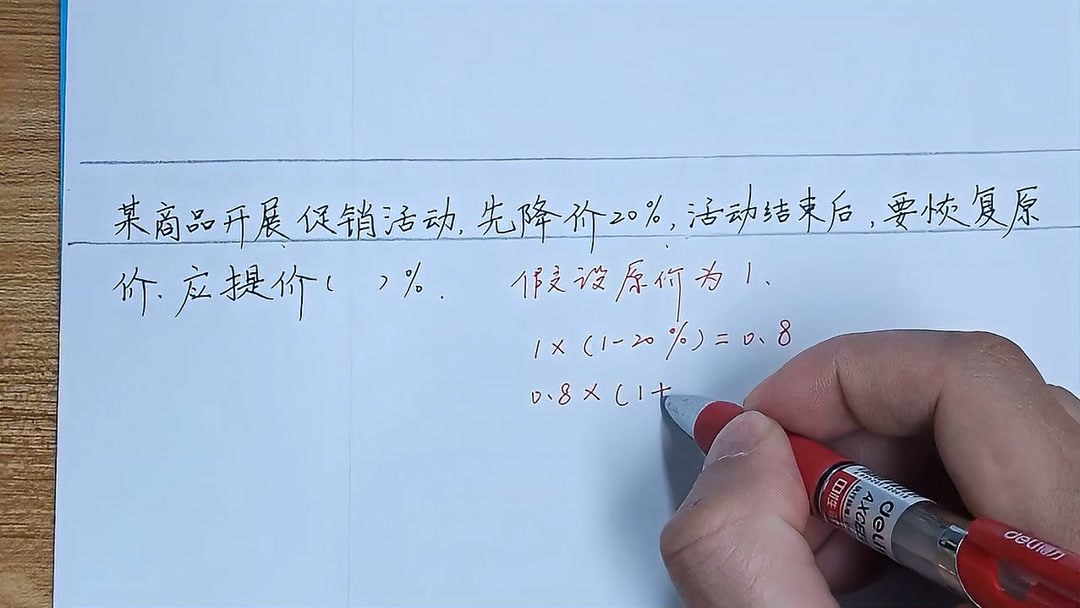 某商品开展促销活动,先降价20%,活动结束后,要恢复原
价.应提价( )%.
假设原价为1.
1×(1-20%)=0.8
0.8×(1+
deli
deli